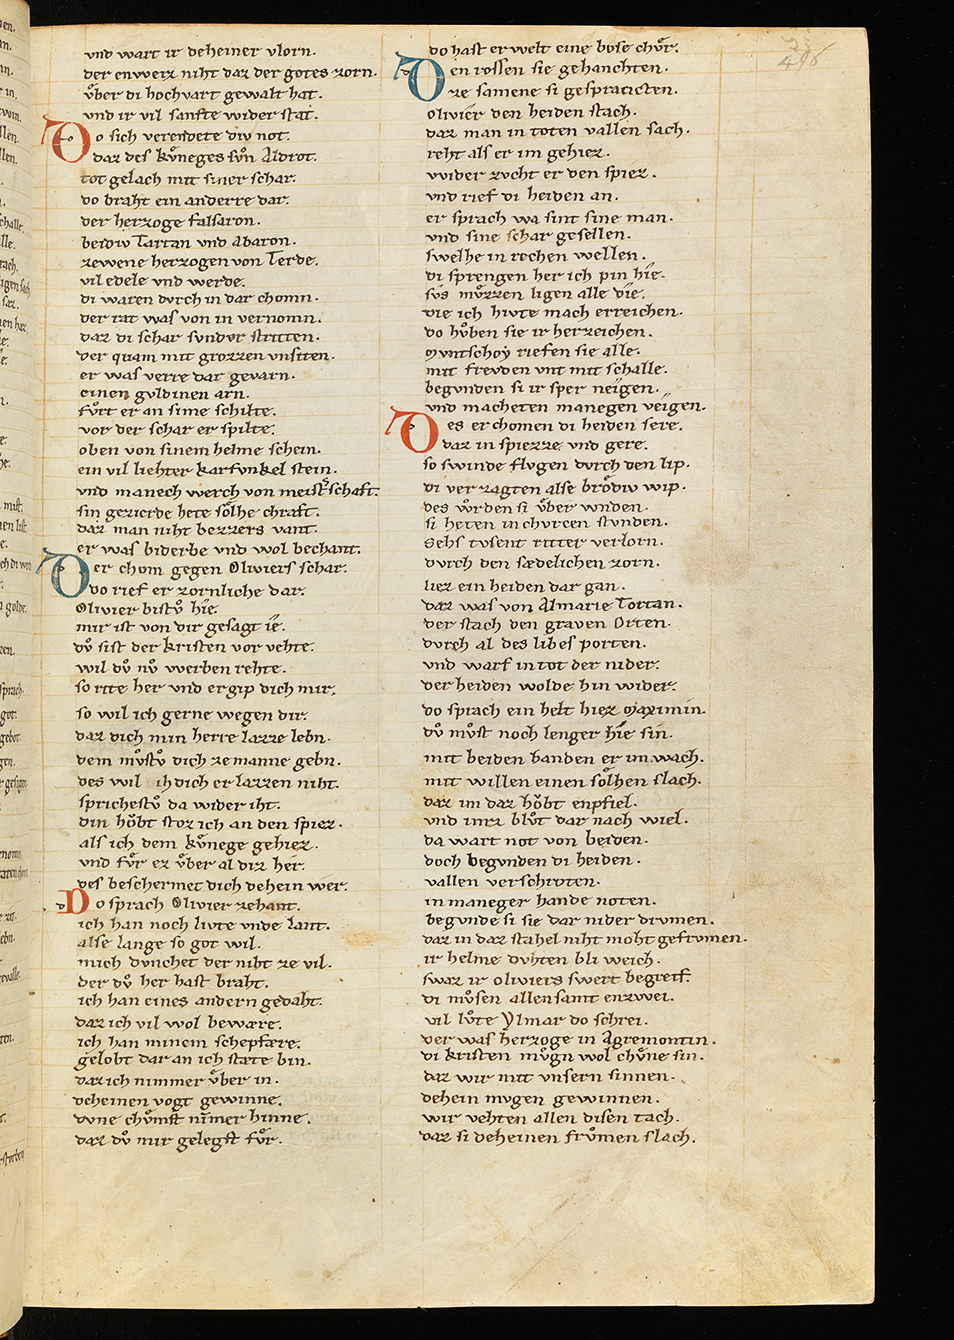 vnd wart ir deheiner vlorn.
der enweiz niht daz der gotes zorn.
vͦber di hochvart gewalt hat.
vnd ir vil sanfte wider stat.
Do sich verendete div not.
daz des kvͤneges svͦn Aldrot.
tot gelach mit siner schar.
do braht ein anderre dar.
der herzoge falsaron.
beidiv Tartan vnd Abaron.
zewene herzogen von Terde.
vil edele vnd werde.
di waren dvrch in dar chomn.
der rat was von in vernomn.
daz di schar svnder stritten.
der quam mit grozzen vnsiten.
er was verre dar gevarn.
einen gvldinen arn.
fvͦrt er an sime schilte.
vor der schar er spilte.
oben von sinem helme schein.
ein vil liehter karfvnkel stein.
vnd manech werch von meist̾schaft.
sin gezierde hete soͤlhe chraft.
daz man niht bezzers vant.
er was biderbe vnd wol bechant.
Der chom gegen Oliviers schar.
do rief er zornliche dar.
Olivier bistvͦ hie.
mir ist von dir gesagt ie.
dvͦ sist der kristen vor vehte.
wil dvͦ nvͦ werben rehte.
so rite her vnd ergip dich mir.
so wil ich gerne wegen dir.
daz dich min herre lazze lebn.
dem mvͦstvͦ dich ze manne gebn.
des wil ih dich erlazzen niht.
sprichestvͦ da wider iht.
din hoͮbt stoz ich an den spiez.
als ich dem kvͤnege gehiez.
vnd fvͤr ez vͤber al diz her.
des beschermet dich dehein wer.
Do sprach Olivier zehant.
ich han noch livte vnde lant.
alse lange so got wil.
mich dvnchet der niht ze vil.
der dvͦ her hast braht.
ich han eines andern gedaht.
daz ich vil wol bewære.
ich han minem schepfære.
gelobt dar an ich stæte bin.
daz ich nimmer vͤber in.
deheinen vogt gewinne.
dvne chvͦmst nim̄er hinne.
daz dvͦ mir gelegest fvͤr.
do hast erwelt eine bose chvͤr.
Den rossen sie gehanchten.
ze samene si gesprancten.
olivier den heiden stach.
daz man in toten vallen sach.
reht als er im gehiez.
wider zvcht er den spiez.
vnd rief di heiden an.
er sprach wa sint sine man.
vnd sine schar gesellen.
swelhe in rechen wellen.
di sprengen her ich pin hie.
svs mvͤzzen ligen alle die.
die ich hivte mach erreichen.
do hvͦben sie ir herzeichen.
Mvntschoy riefen sie alle.
mit frevden vnt mit schalle.
begvnden si ir sper neigen.
vnd macheten manegen veigen.
Des erchomen di heiden sere.
daz in spiezze vnd gere.
so swinde flvgen dvrch den lip.
di verzagten alse broͤdiv wip.
des wͦrden si vͤber wnden.
si heten in chvrcen stvnden.
Sehs tvsent ritter verlorn.
dvrch den sædelichen zorn.
liez ein heiden dar gan.
daz was von Almarie Tortan.
der stach den graven Orten.
dvrch al des libes porten.
vnd warf in tot der nider.
der heiden wolde hin wider.
do sprach ein helt hiez Maximin.
dvͦ mvͦst noch lenger hie sin.
mit beiden handen er im wach.
mit willen einen soͤlhen slach.
daz im daz hoͮbt enpfiel.
vnd imz blvͦt dar nach wiel.
da wart not von beiden.
doch begvnden di heiden.
vallen verschroten.
in maneger hande noten.
begvnde si sie dar nider drvmen.
daz in daz stahel niht moht gefrvmen.
ir helme dvhten bli weich.
swaz ir oliviers swert begreif.
di mvͦsen allensamt enzwei.
vil lvͦte Ylmar do schrei.
der was herzoge in Agremontin.
di kristen mvͦgn wol chvͤne sin.
daz wir mit vnsern sinnen.
dehein mvgen gewinnen.
wir vehten allen disen tach.
daz si deheinen frvͦmen slach.